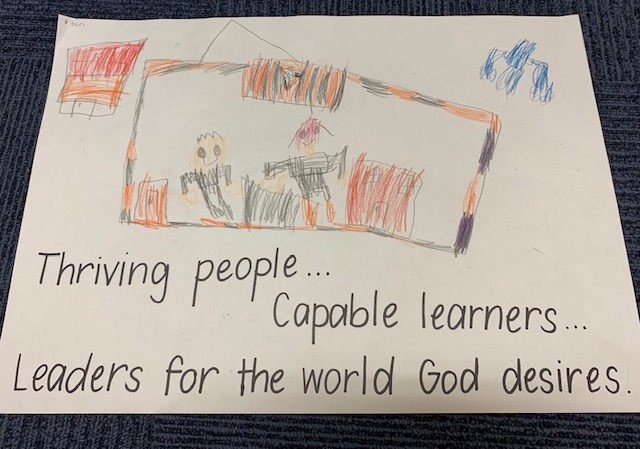 Thriving people...
Capable learners...
Leaders for the world God desires.